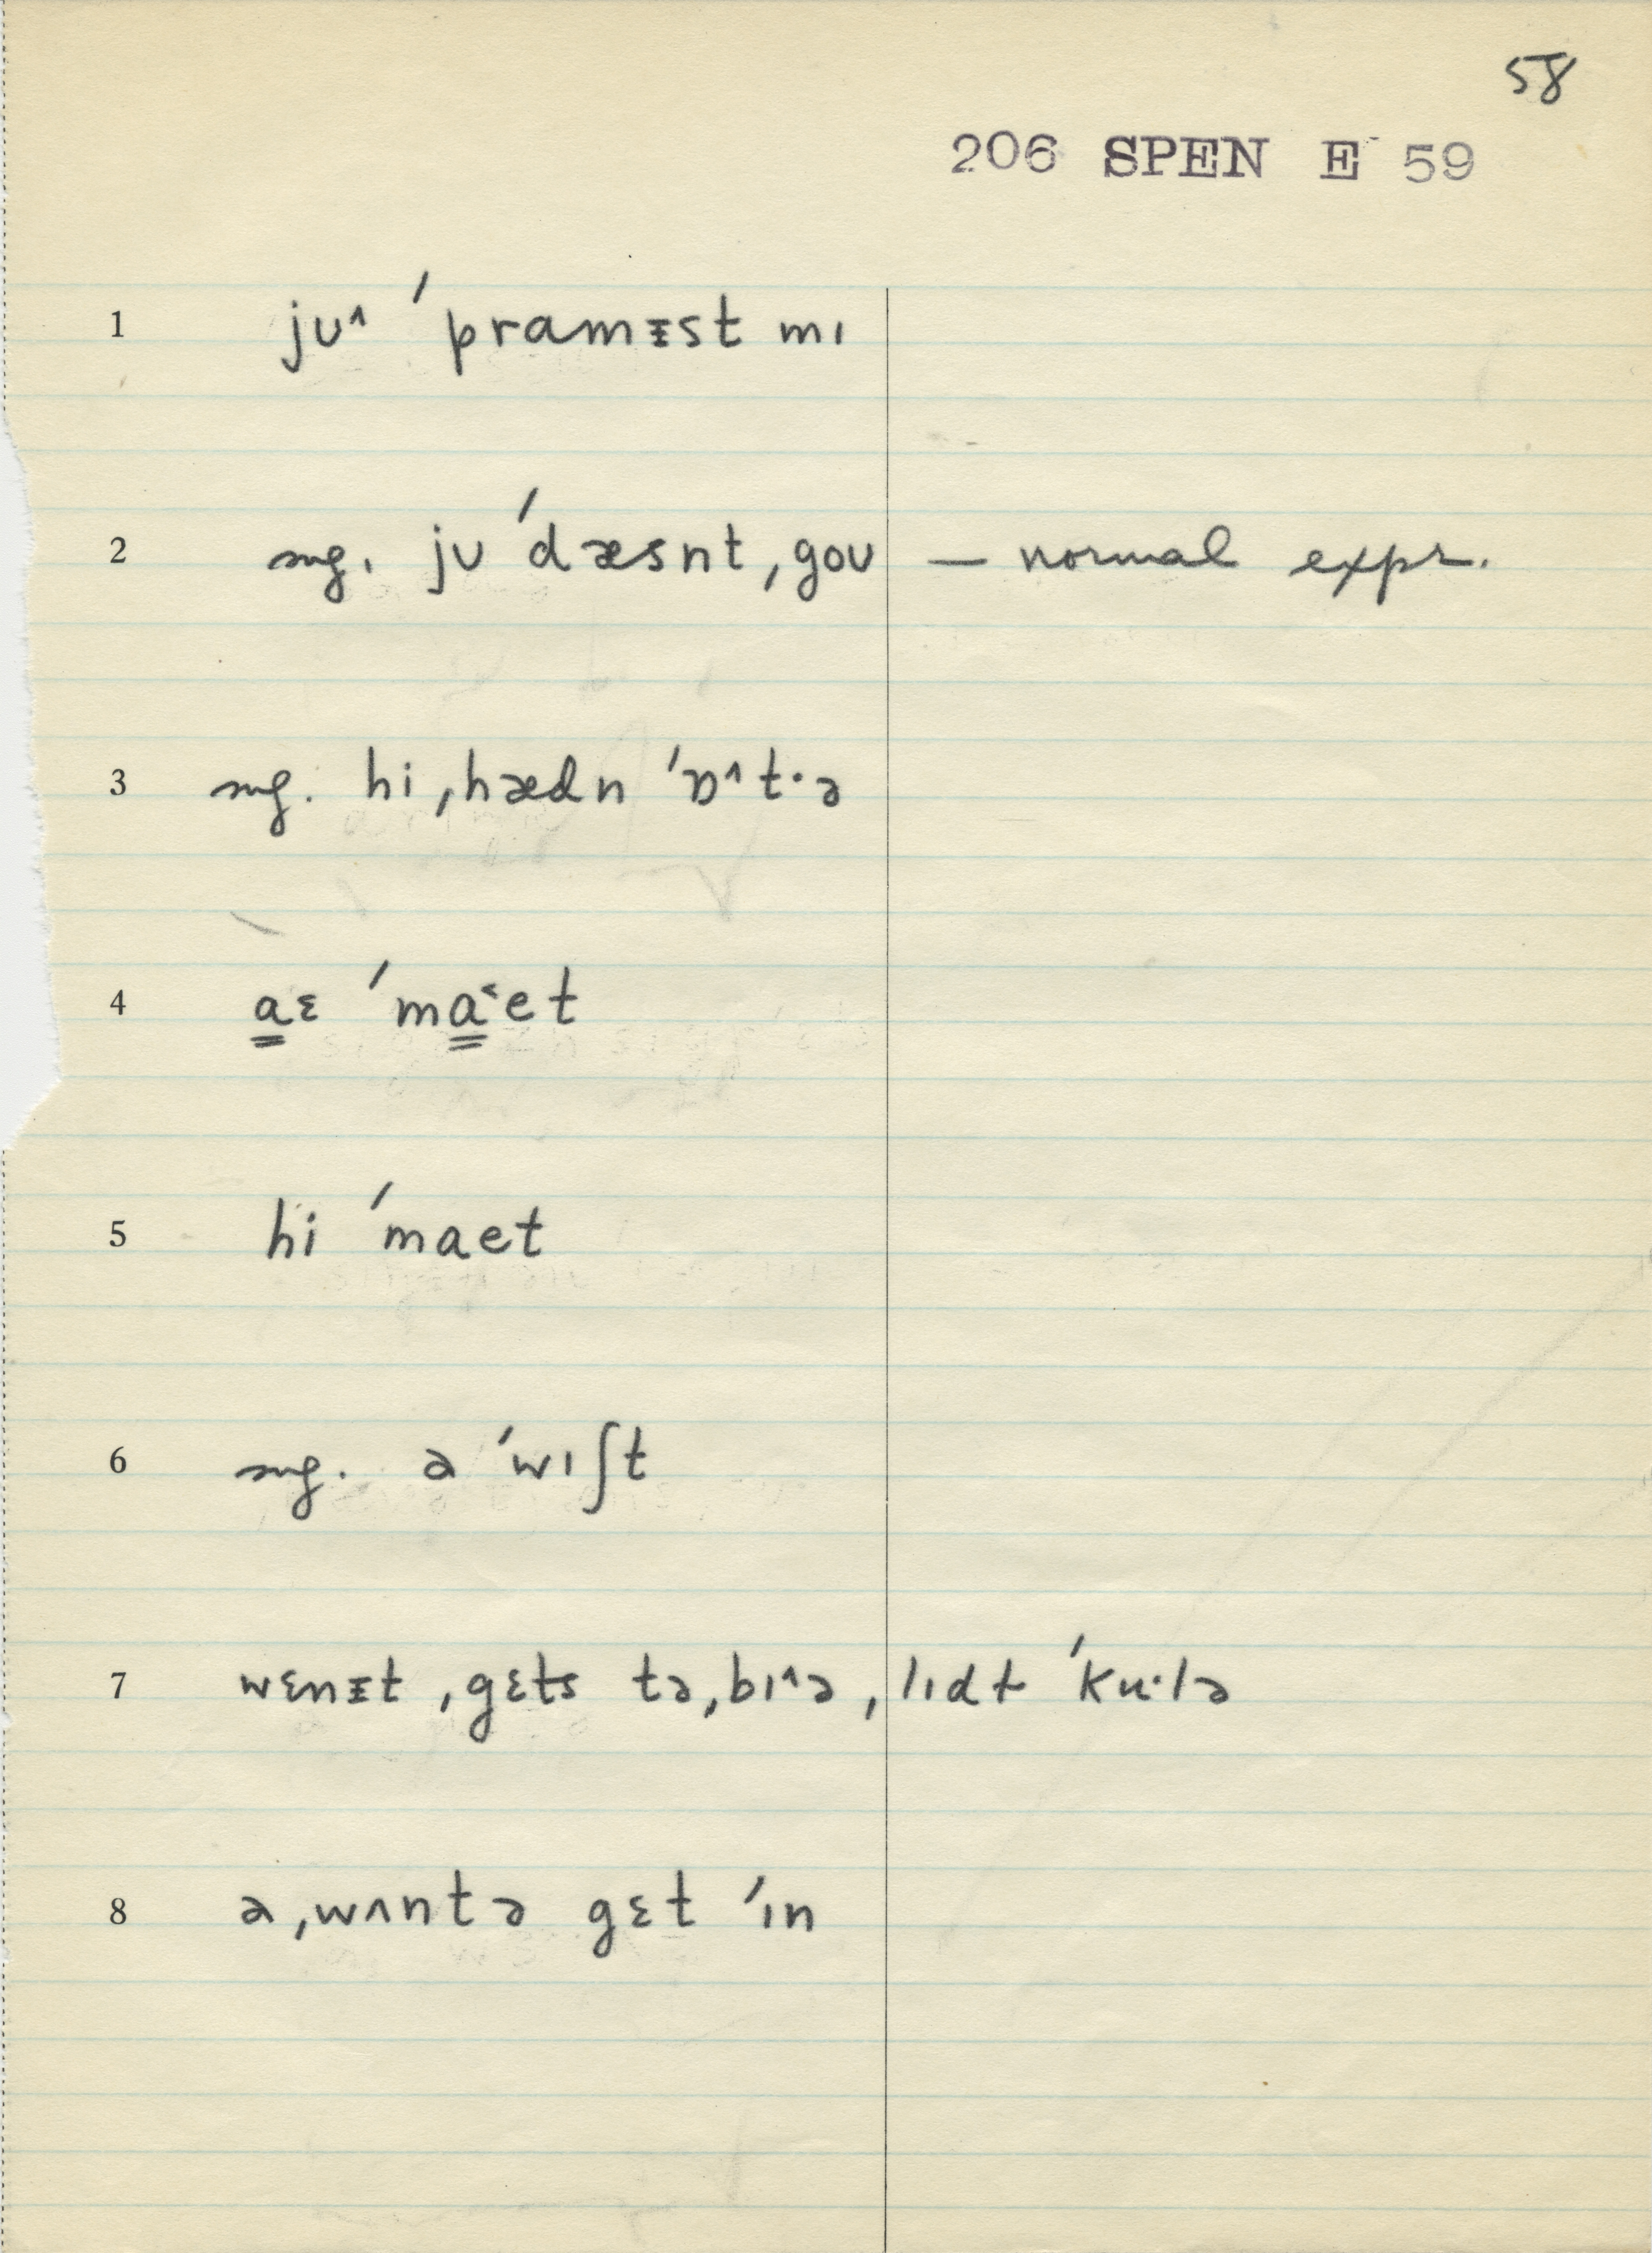 58
206 SPEN E 59
1 jʊ^ ˈpramɪ̵st mɪ
2 sug. jʊ ˈdæsnt ˌgoʊ — normal expr.
3 sug. hi ˌhædn ˈɒ^t·ə
4 a̳ɛ ˈma̳˂et
5 hi ˈmaet
6 sug. ə ˈwɪʃt
7 wɛnɪ̵t ˌgɛts tə ˌbɪ^ə ˌlɪdt ˈku·lə
8 ə ˌwʌntə gɛt ˈɪn